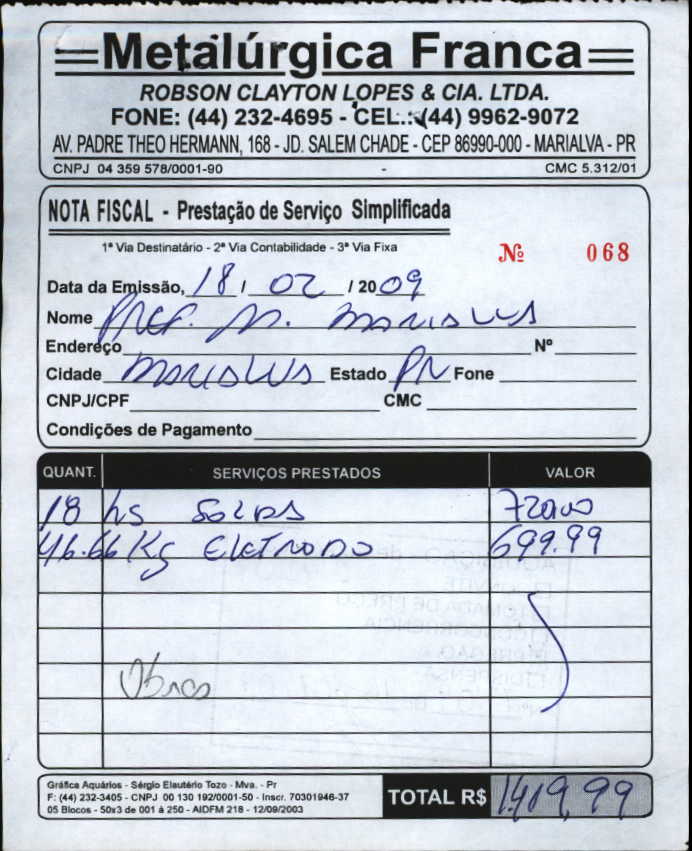 Metalúrgica Franca
ROBSON CLAYTON LOPES & CIA. LTDA.
FONE: (44) 232-4695 - CEL.: (44) 9962-9072
AV. PADRE THEO HERMANN, 168 - JD. SALEM CHADE - CEP 86990-000 - MARIALVA - PR
CNPJ 04 359 578/0001-90 - CMC 5.312/01
NOTA FISCAL - Prestação de Serviço Simplificada
1ª Via Destinatário - 2ª Via Contabilidade - 3ª Via Fixa
Nº 068
Data da Emissão, 18 / 02 / 2009
Nome PREF. M. MARIALVA
Endereço Nº
Cidade MARIALVA Estado PR Fone
CNPJ/CPF CMC
Condições de Pagamento
QUANT. SERVIÇOS PRESTADOS VALOR
18 hs SOLDA 720,00
46.66 Kg ELETRODO 699.99
Obras
Gráfica Aquários - Sérgio Elautério Tozo - Mva. - Pr
F: (44) 232-3405 - CNPJ 00 130 192/0001-50 - Inscr. 70301946-37
05 Blocos - 50x3 de 001 à 250 - AIDFM 218 - 12/09/2003
TOTAL R$ 1.419,99